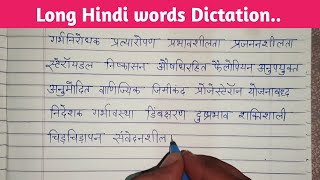 Long Hindi words Dictation..
गर्भनिरोधक प्रत्यारोपण प्रभावशीलता प्रजननशीलता
स्टेरॉयडल निष्कासन औषधिरहित फैलोपियन अनुपयुक्त
अनुमोदित वाणिज्यिक जिमीकंद प्रोजेस्टेरॉन योजनाबध्द
निदेशक गर्भावस्था डिंबक्षरण दुष्प्रभाव शक्तिशाली
चिड़चिड़ापन संवेदनशील